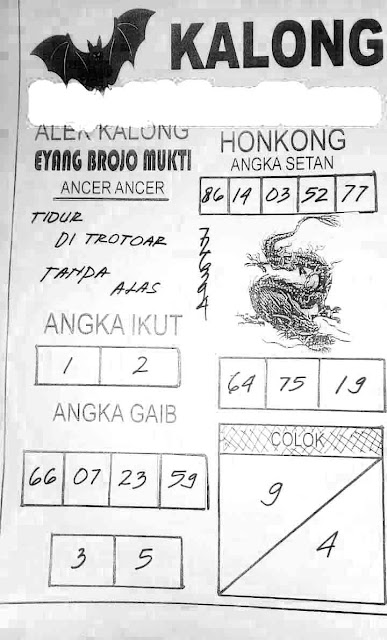 KALONG
ALEK KALONG
EYANG BROJO MUKTI
ANCER ANCER
TIDUR
DI TROTOAR
TANDA
ALAS
ANGKA IKUT
1 2
ANGKA GAIB
66 07 23 59
3 5
HONKONG
ANGKA SETAN
86 14 03 52 77
64 75 19
COLOK
9
4